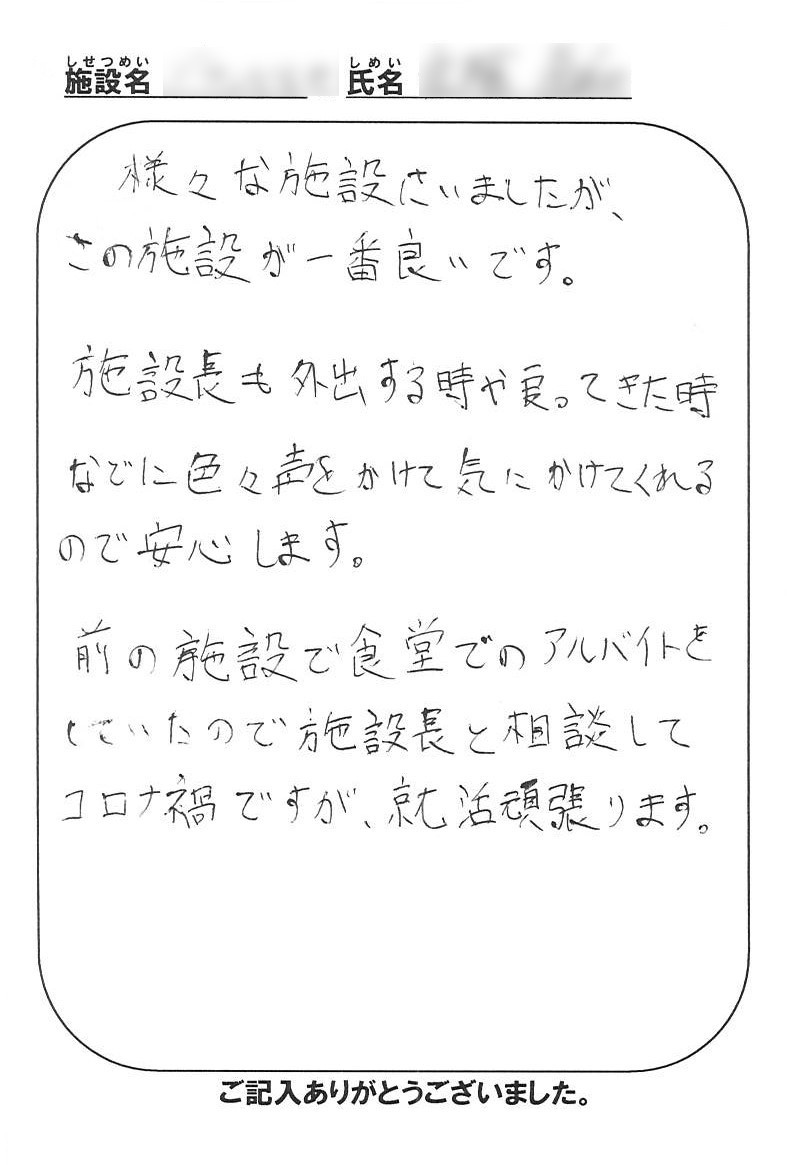 しせつめい しめい
施設名 氏名
様々な施設さいましたが、
この施設が一番良いです。
施設長も外出する時や戻ってきた時
などに色々声をかけて気にかけてくれる
ので安心します。
前の施設で食堂でのアルバイトを
していたので施設長と相談して
コロナ禍ですが、就活頑張ります。
ご記入ありがとうございました。